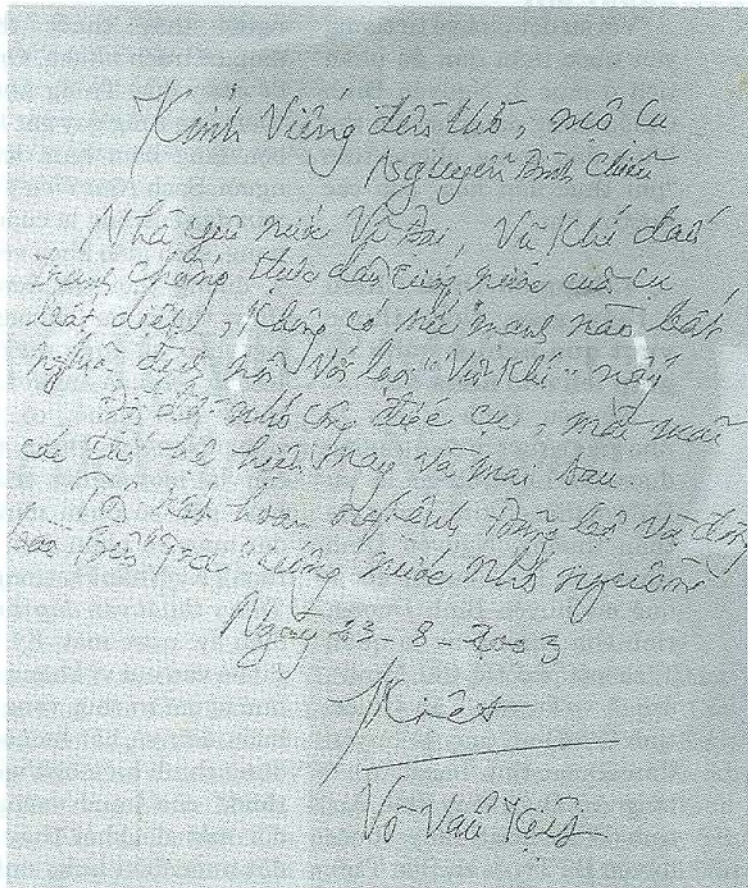 Kính Viếng đền thờ, mộ Cụ
Nguyễn Đình Chiểu
Nhà yêu nước Vĩ Đại, Vũ Khí đấu
tranh chống thực dân cướp nước của cụ
bất diệt, không có sức mạnh nào bất
nghĩa địch nổi Với loại "Vũ Khí" này
Đời đời nhớ công đức cụ, mãi mãi
các thế hệ hiện nay và mai sau.
Tôi rất hoan nghênh Đảng bộ và đồng
bào Bến Tre "uống nước nhớ nguồn"
Ngày 23-8-2003
Kiệt
Võ Văn Kiệt